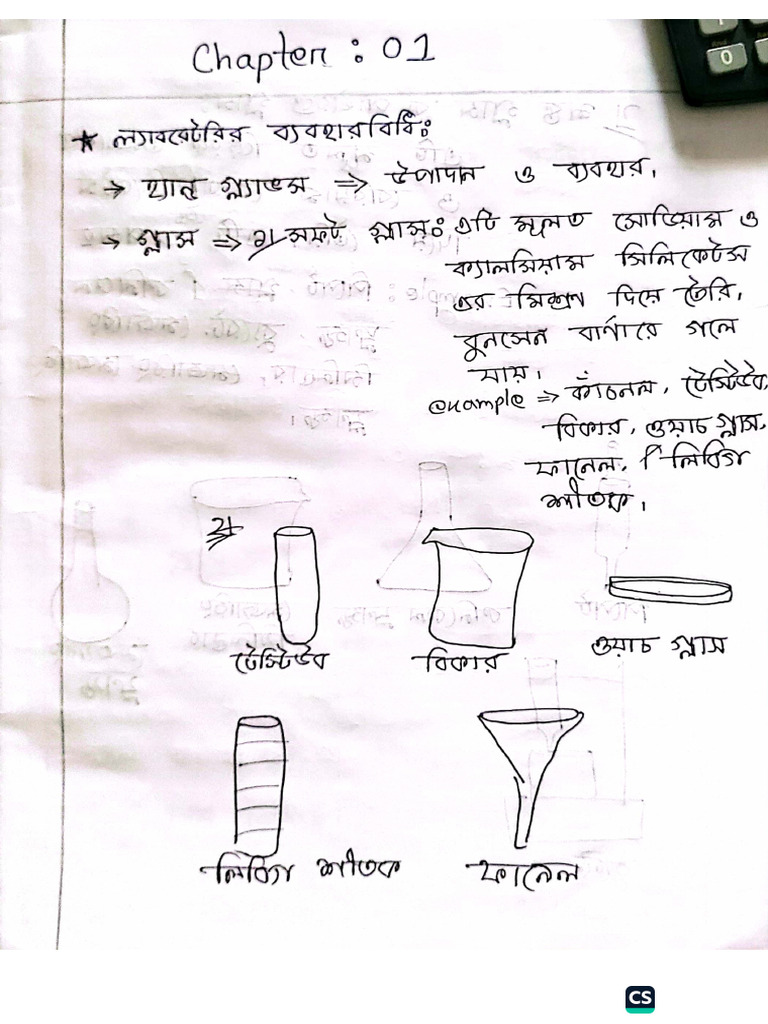 Chapter : 01
* ল্যাবরেটরির ব্যবহারবিধি:
→ হ্যান্ড গ্লাভস ⇒ উপাদান ও ব্যবহার।
→ গ্লাস ⇒ ১/ সফট গ্লাস: এটি মূলত সোডিয়াম ও
ক্যালসিয়াম সিলিকেটস
এর মিশ্রণ দিয়ে তৈরি,
বুনসেন বার্ণারে গলে
যায়।
example ⇒ কাঁচনল, টেস্টিউব,
বিকার, ওয়াচ গ্লাস,
ফানেল, লিবিগ
শীতক।
টেস্টিউব
বিকার
ওয়াচ গ্লাস
লিবিগ শীতক
ফানেল
CS
0